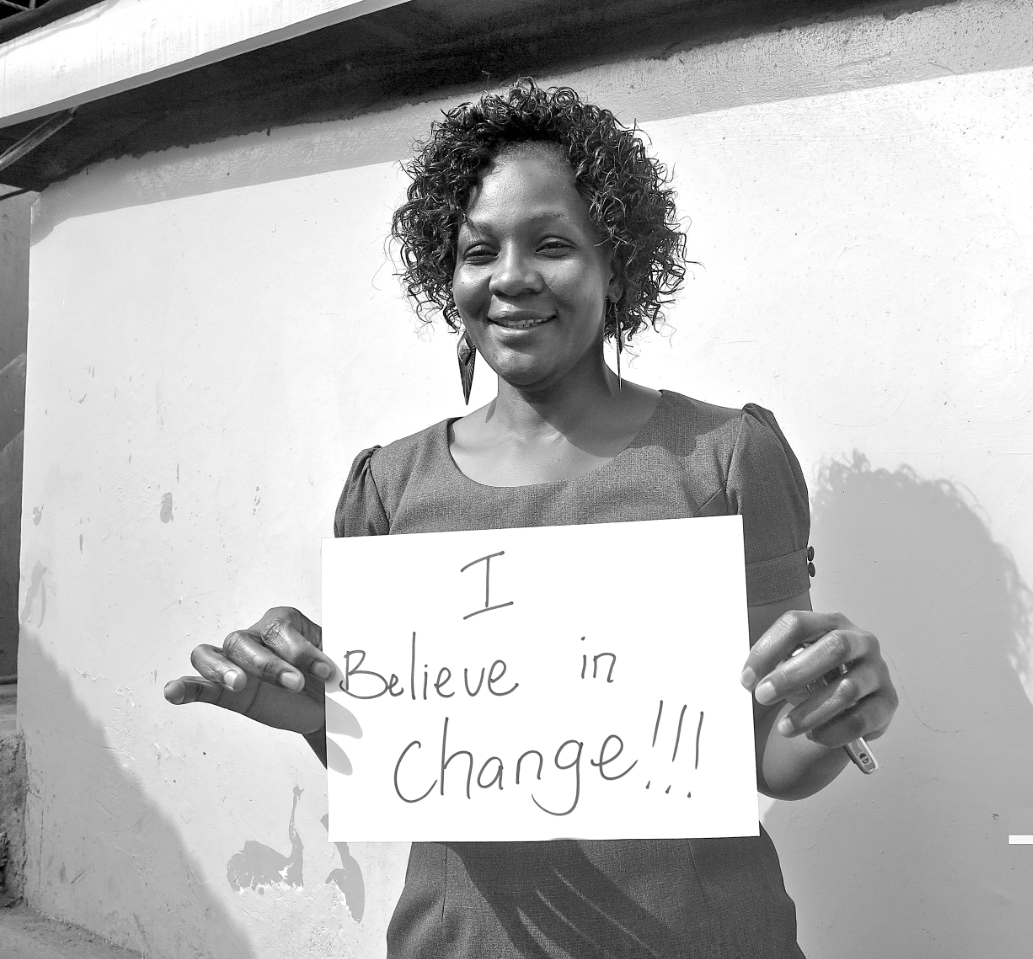 I
Believe in
Change!!!